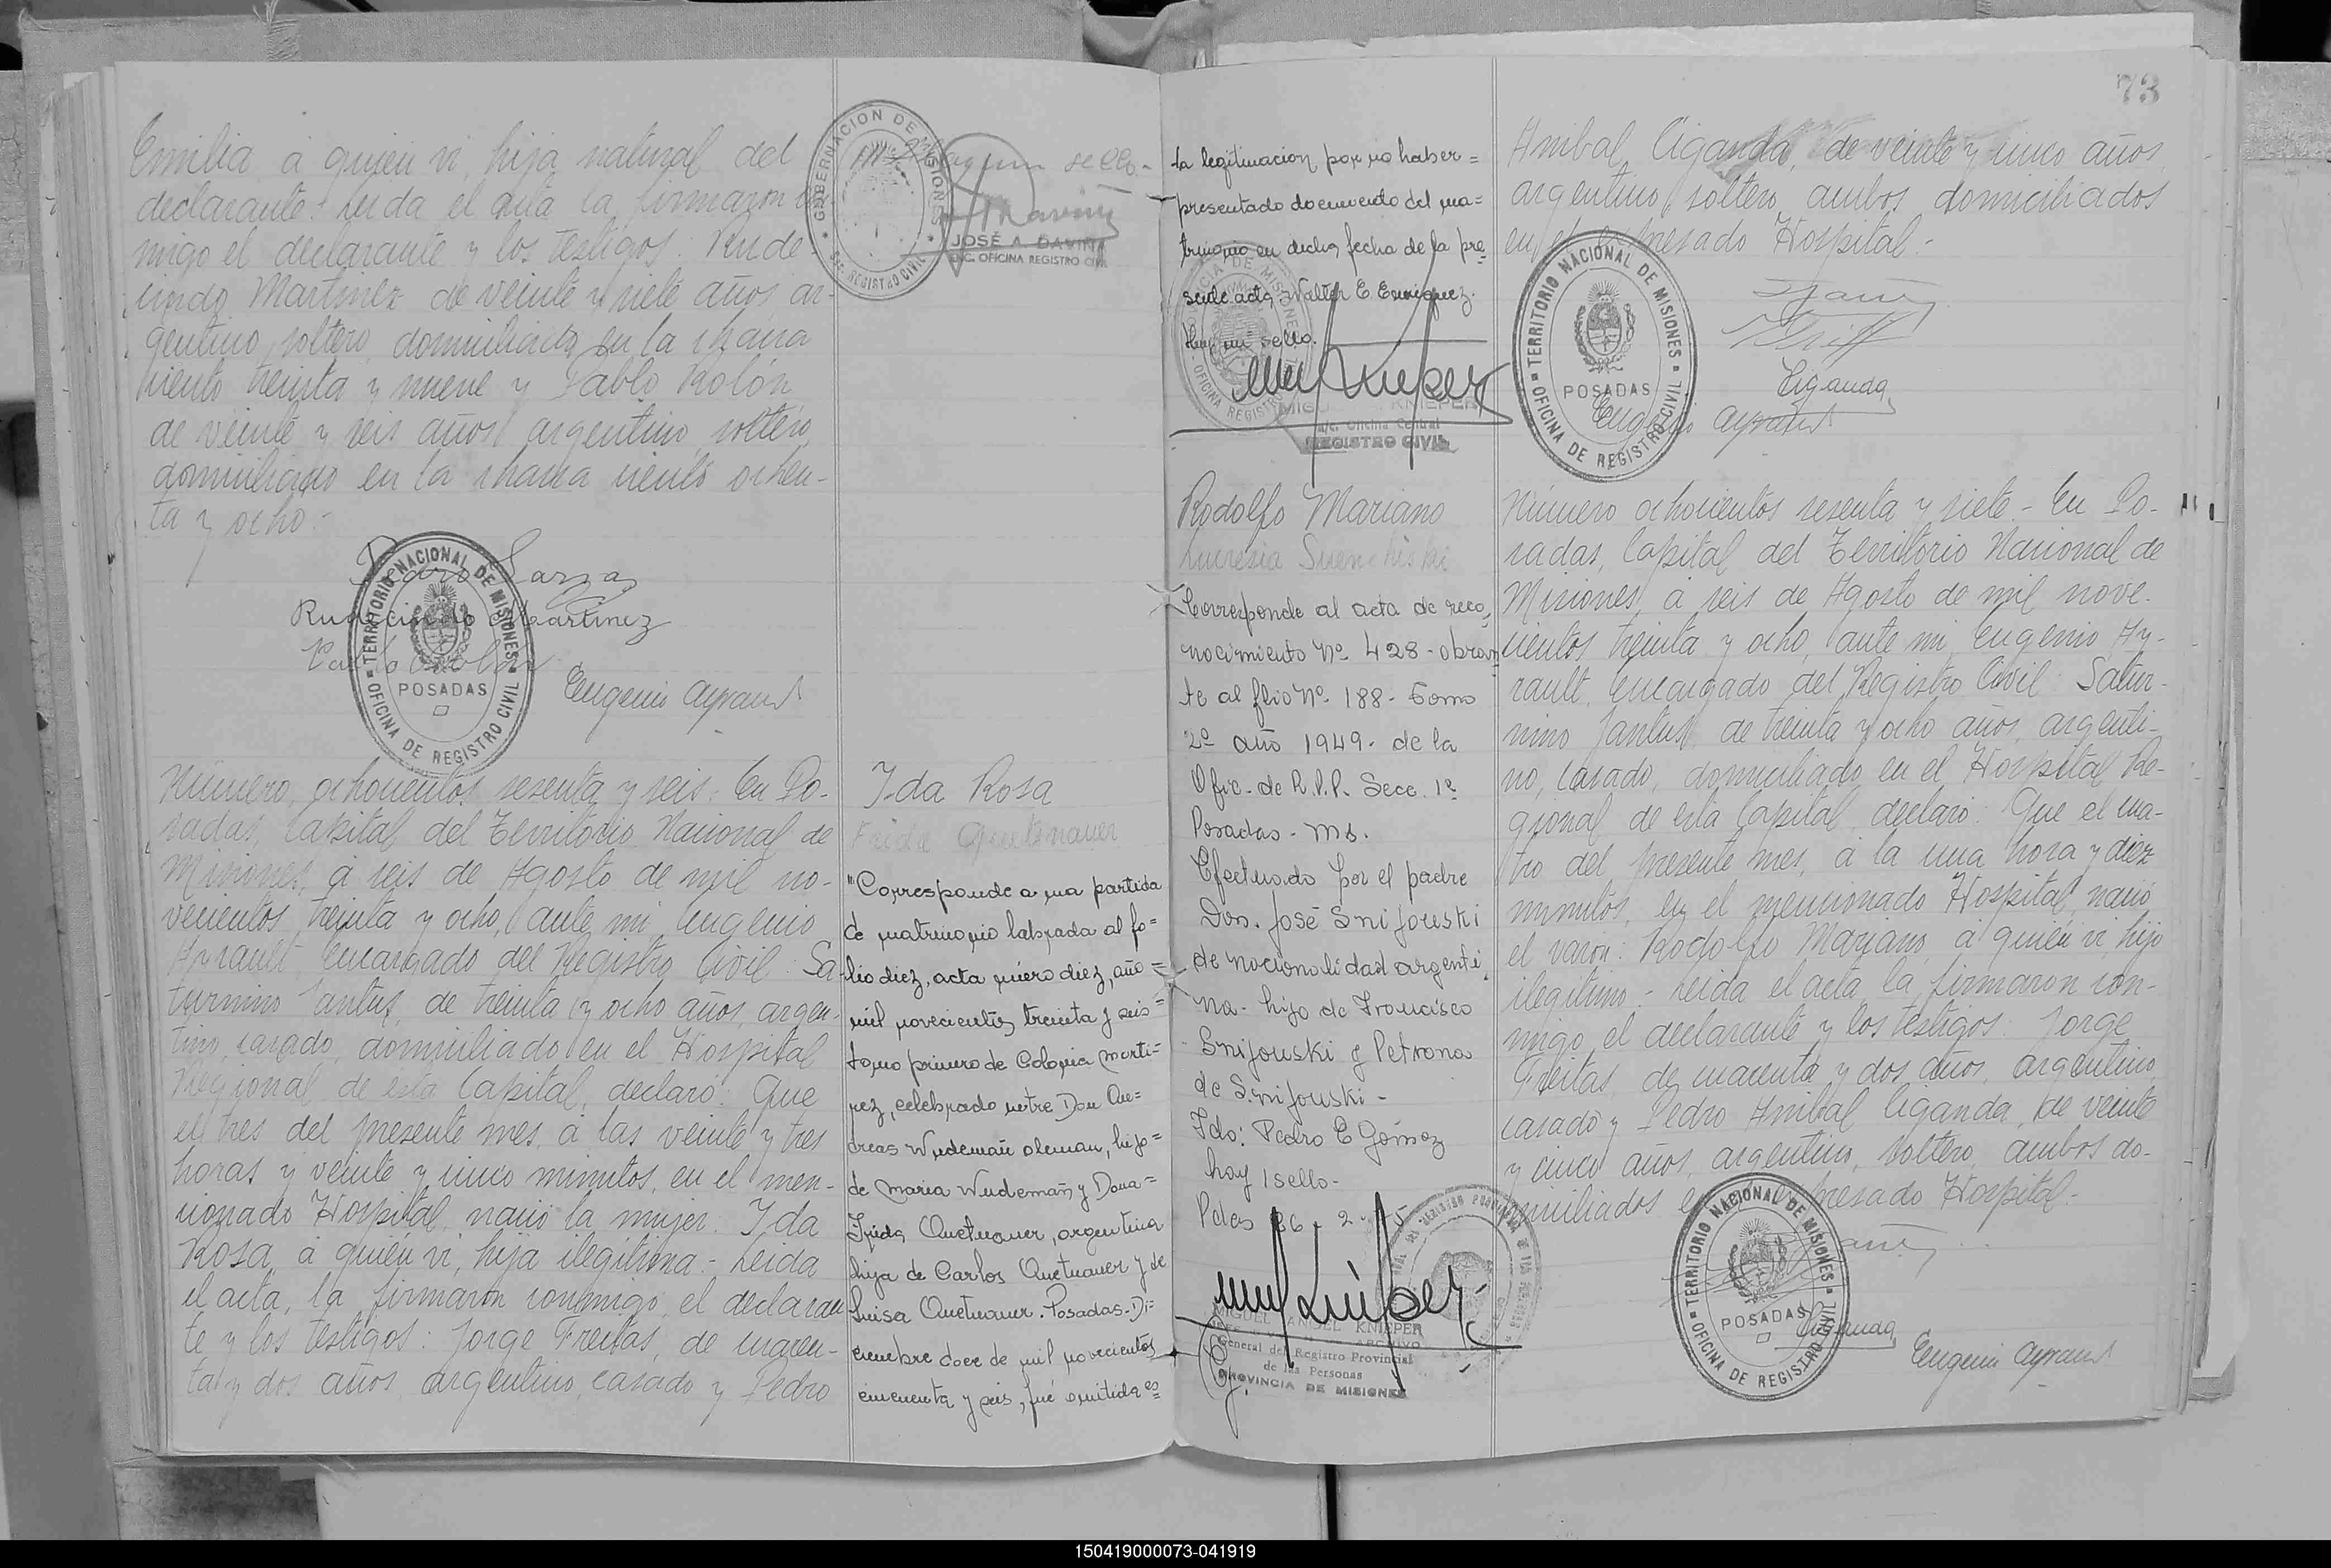 Emilia a quien vi, hija natural del
declarante. Leida el acta la firmaron con-
migo el declarante y los testigos: Rude-
cindo Martinez de veinte y siete años, ar-
gentino, soltero, domiciliado en la chacra
ciento treinta y nueve y Pablo Rolón,
de veinte y seis años, argentino, soltero,
domiciliado en la chacra ciento ochen-
ta y ocho.-
Rudecindo Martinez
Pablo Rolon
Eugenio Ayrault
TERRITORIO NACIONAL DE MISIONES
POSADAS
OFICINA DE REGISTRO CIVIL
Número ochocientos sesenta y seis. En Po-
sadas, Capital del Territorio Nacional de
Misiones, á seis de Agosto de mil no-
vecientos treinta y ocho, ante mi Eugenio
Ayrault encargado del Registro Civil: Sa-
turnino Jantus, de treinta y ocho años, argen-
tino, casado, domiciliado en el Hospital
Regional de esta Capital, declaró: Que
el tres del presente mes, á las veinte y tres
horas y veinte y cinco minutos, en el men-
cionado Hospital, nació la mujer: Ida
Rosa, á quien vi, hija ilegitima.- Leida
el acta, la firmaron conmigo, el declaran-
te y los testigos: Jorge Freitas, de cuaren-
ta y dos años, argentino, casado y Pedro
GOBERNACION DE MISIONES
REGISTRO CIVIL
sello.-
JOSÉ A. DAVIÑA
ENC. OFICINA REGISTRO CIVIL
Ida Rosa
Frida Quetnauer
"Corresponde a una partida
de matrimonio labrada al fo=
lio diez, acta número diez, año =
mil novecientos treinta y seis =
tomo primero de Colonia Marti=
rez, celebrado entre Don An=
dreas Wudemañ aleman, hijo=
de Maria Wudemañ y Doña=
Frida Quetnauer, argentina
hija de Carlos Quetnauer y de
Luisa Quetnauer. Posadas-Di=
ciembre doce de mil novecientos
cincuenta y seis, fué omitida es=
la legitimacion por no haber=
presentado documento del ma=
trimonio en dicha fecha de la pre=
sente acta, Walter E. Enriquez.
Hay un sello.
MIGUEL KNIEPER
a/c. Oficina Central
REGISTRO CIVIL
Rodolfo Mariano
Corresponde al acta de reco-
nocimiento Nº 428 - obran
te al flio Nº. 188 - Tomo
2º año 1949 - de la
Ofic. de R.P.P. Secc. 1ª
Posadas - Ms.
Efectuado por el padre
Don. José Snijouski
de nacionalidad argenti
na - hijo de Francisco
Snijouski y Petrona
de Snijouski -
Fdo: Pedro E Gómez
hay 1 sello-
Pdas 26 - 2 -
MIGUEL ANGEL KNIEPER
ARCHIVO
General del Registro Provincial
de las Personas
PROVINCIA DE MISIONES
73
Anibal Ciganda, de veinte y cinco años,
argentino, soltero, ambos domiciliados
en el expresado Hospital.-
Ciganda
Eugenio Ayrault
TERRITORIO NACIONAL DE MISIONES
POSADAS
OFICINA DE REGISTRO CIVIL
Número ochocientos sesenta y siete.- En Po-
sadas, Capital del Territorio Nacional de
Misiones, á seis de Agosto de mil nove-
cientos treinta y ocho, ante mi, Eugenio Ay-
rault, encargado del Registro Civil: Satur-
nino Jantus, de treinta y ocho años, argenti-
no, casado, domiciliado en el Hospital Re-
gional de esta Capital, declaró: Que el cua-
tro del presente mes, á la una hora y diez
minutos, en el mencionado Hospital, nació
el varon: Rodolfo Mariano, á quien vi, hijo
ilegitimo.- Leida el acta, la firmaron con-
migo, el declarante y los testigos: Jorge
Freitas, de cuarenta y dos años, argentino,
casado y Pedro Anibal Ciganda, de veinte
y cinco años, argentino, soltero, ambos do-
miciliados en el expresado Hospital.-
Ciganda
Eugenio Ayrault
TERRITORIO NACIONAL DE MISIONES
POSADAS
OFICINA DE REGISTRO CIVIL
150419000073-041919